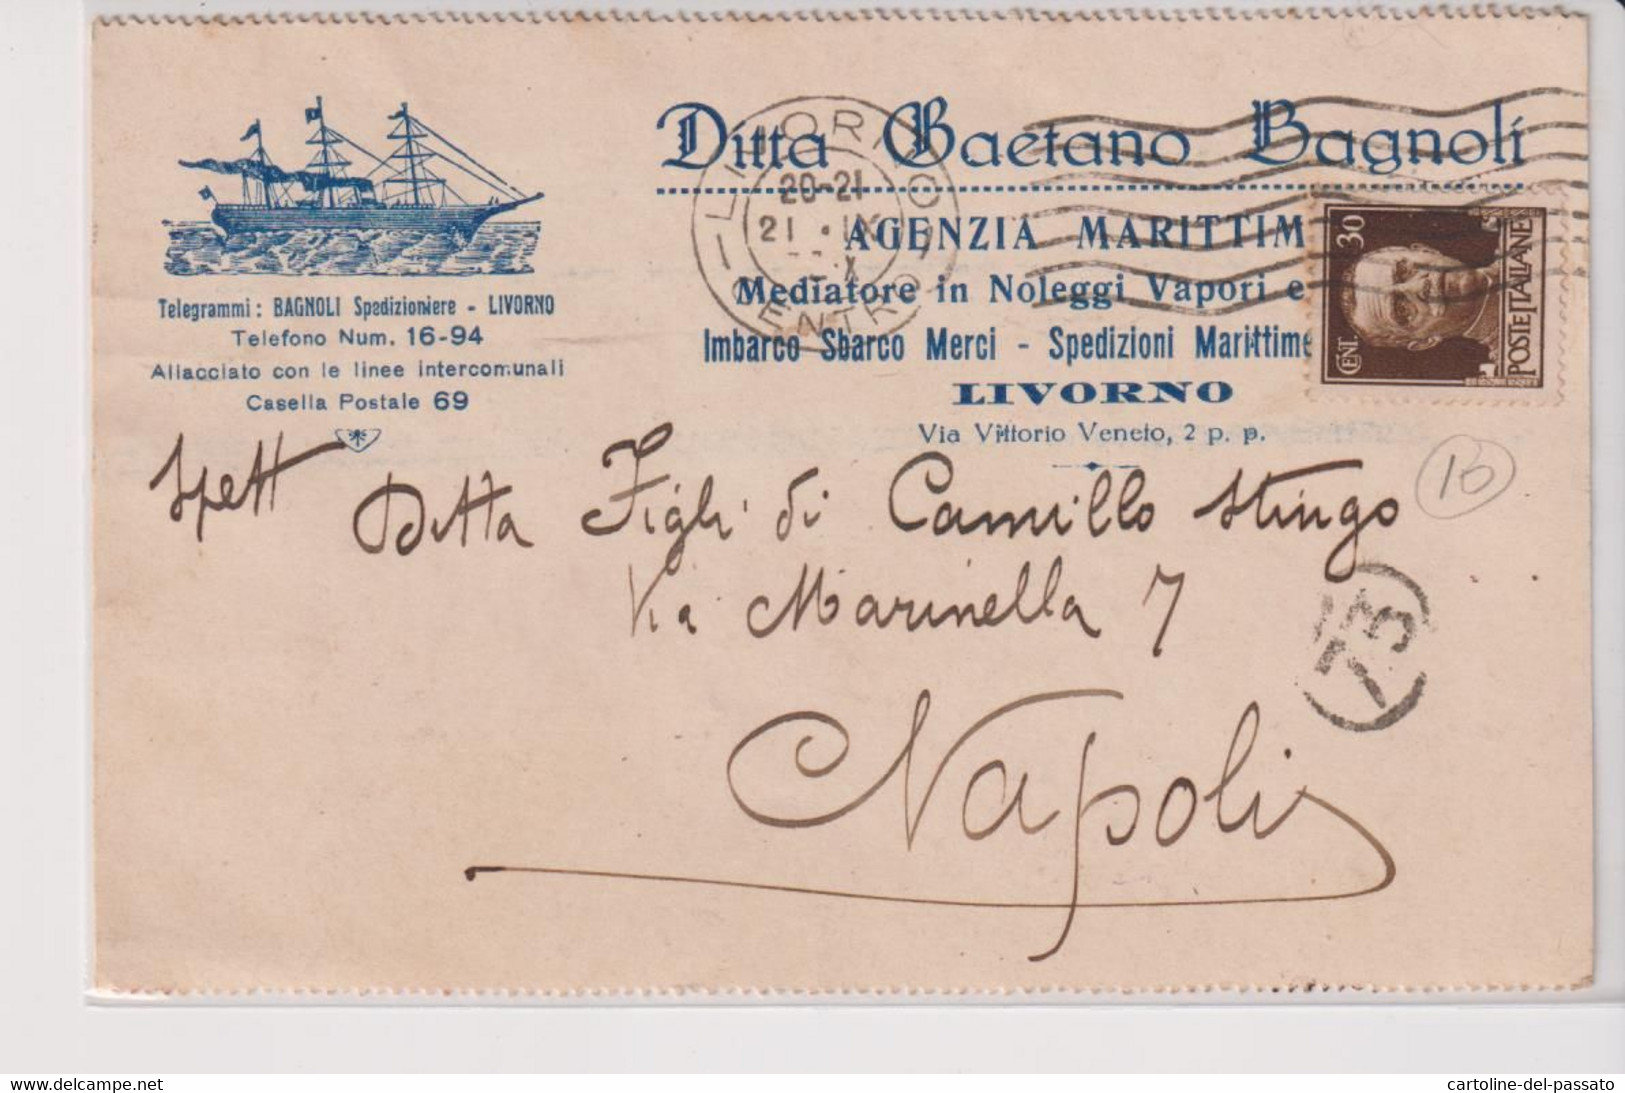 Ditta Gaetano Bagnoli
AGENZIA MARITTIM
Mediatore in Noleggi Vapori e
Imbarco Sbarco Merci - Spedizioni Marittime
LIVORNO
Via Vittorio Veneto, 2 p. p.
Telegrammi: BAGNOLI Spedizioniere - LIVORNO
Telefono Num. 16-94
Allacciato con le linee intercomunali
Casella Postale 69
LIVORNO
20-21
21 · IX
X
CENTRO
CENT. 30
POSTE ITALIANE
Spett Ditta Figli di Camillo Stingo
Via Marinella 7
Napoli
73
delcampe.net
cartoline-del-passato